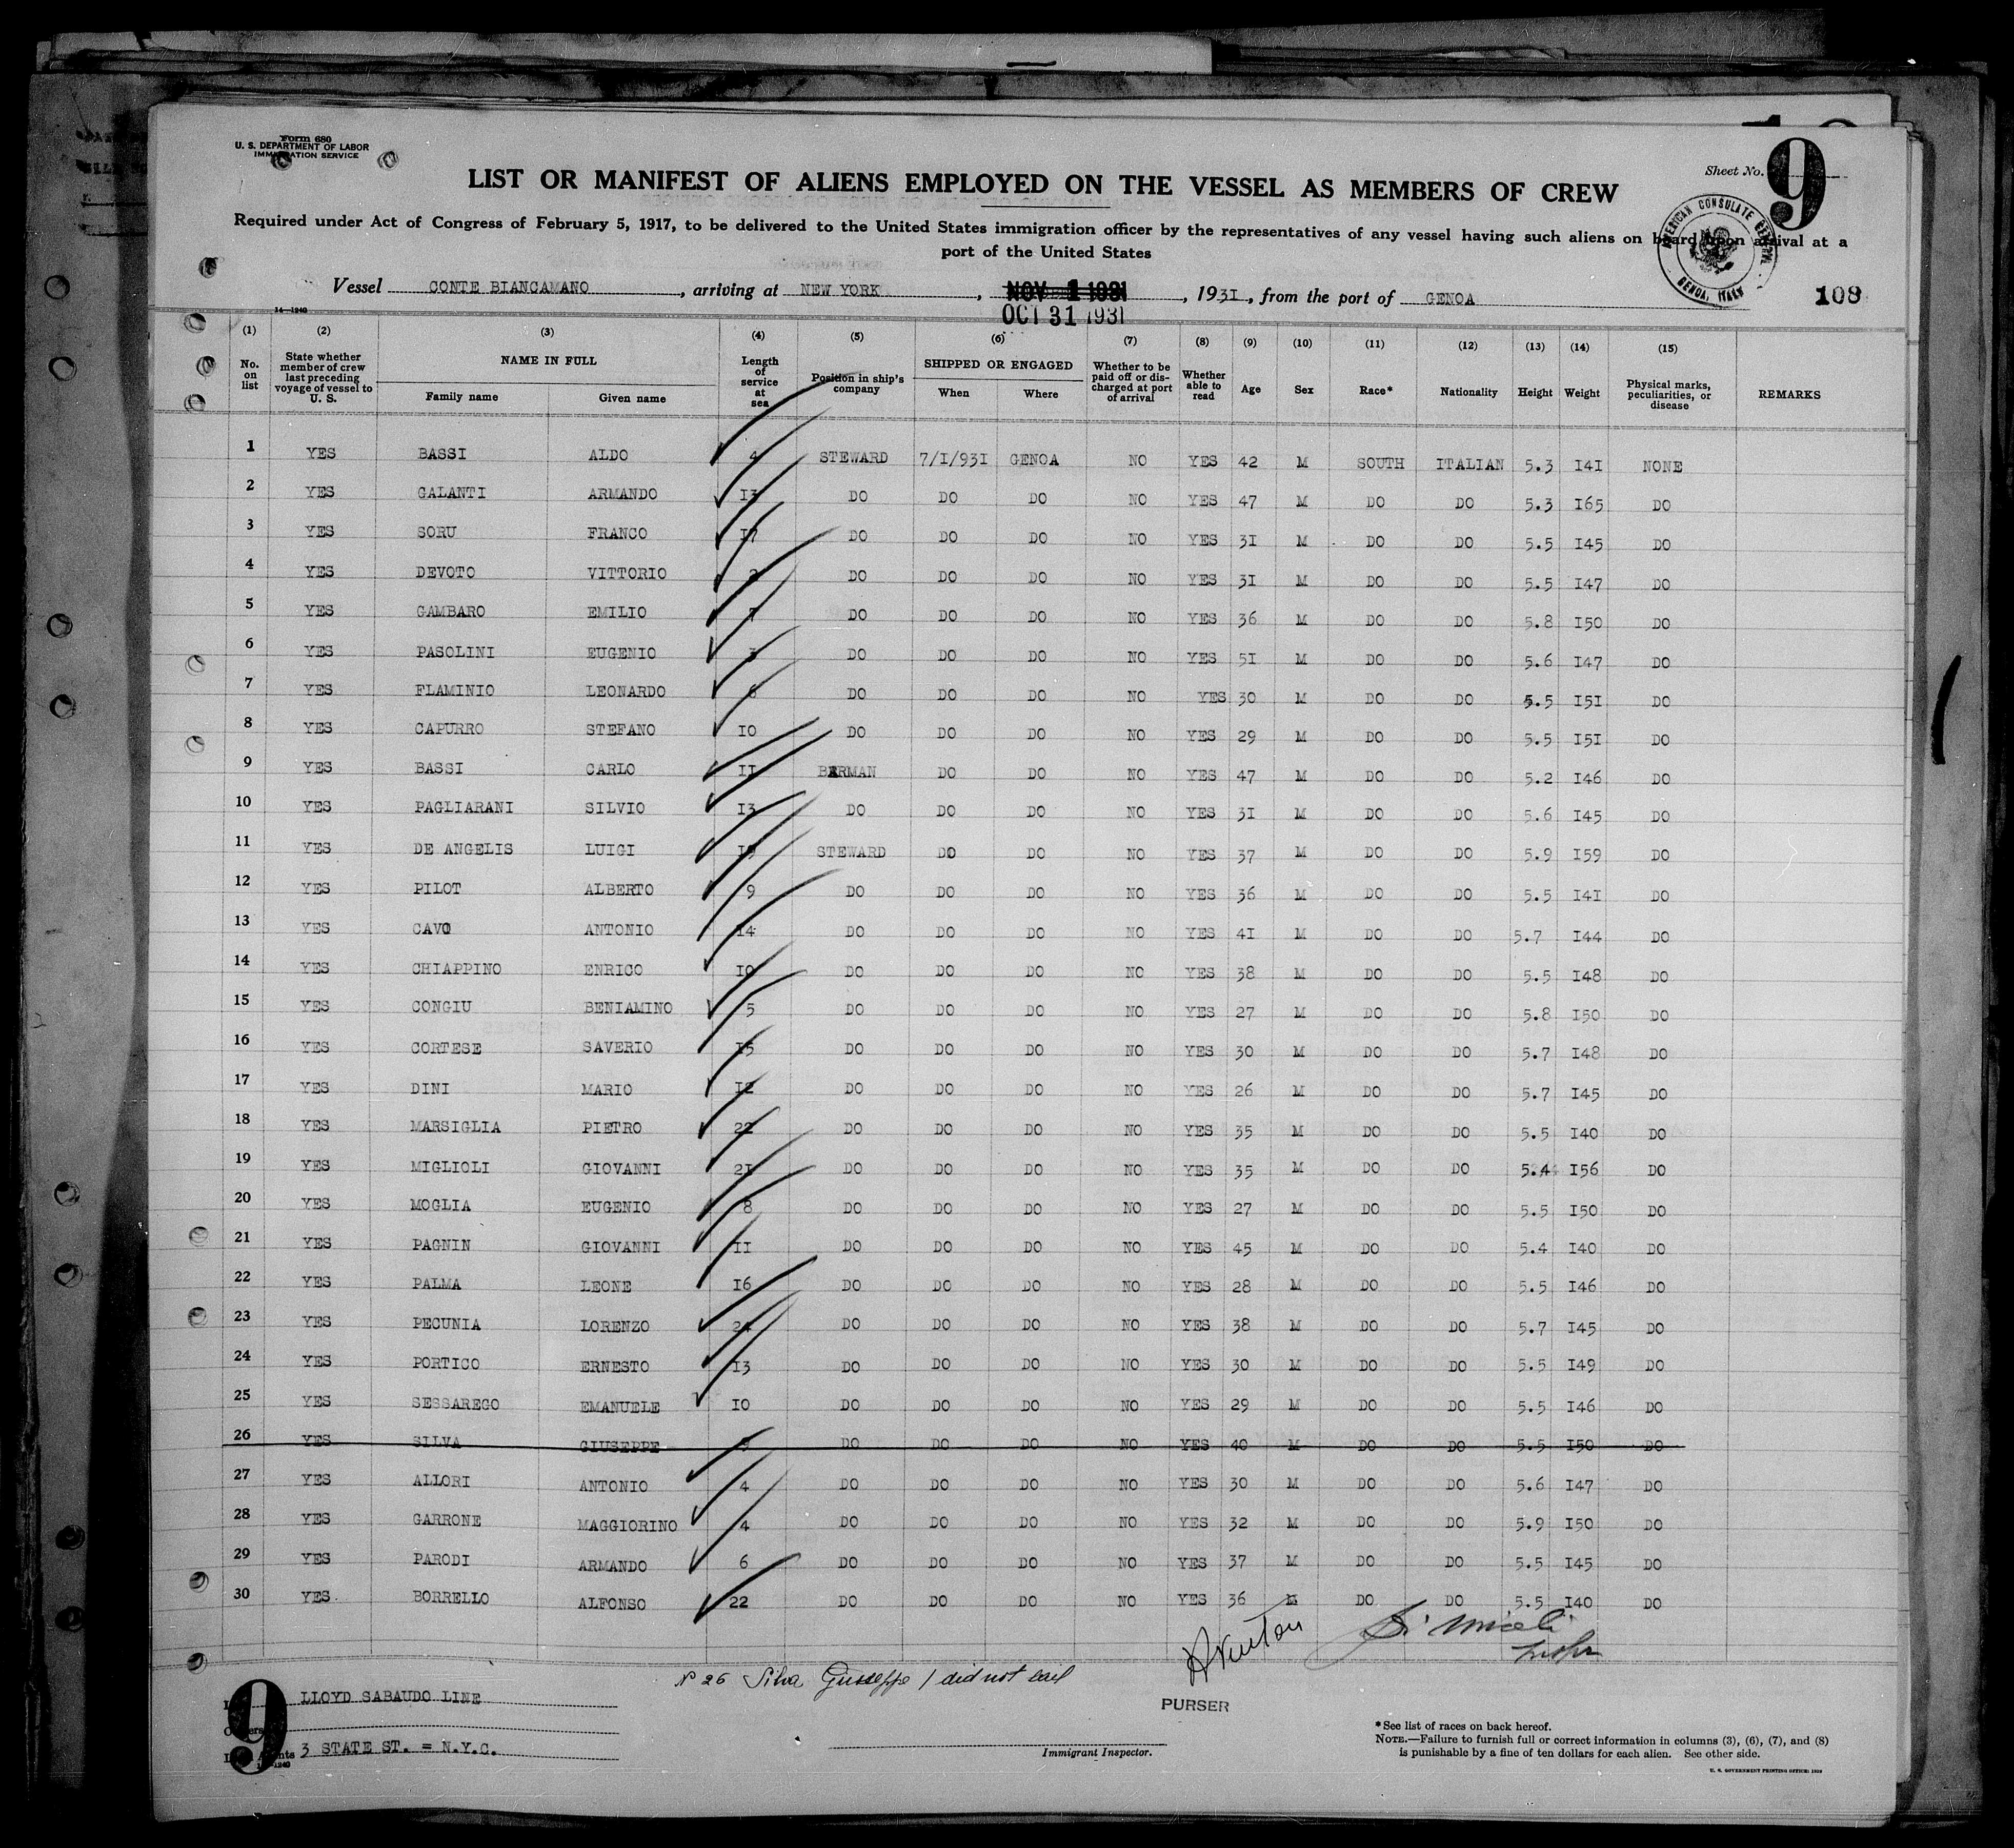 Form 680
U. S. DEPARTMENT OF LABOR
IMMIGRATION SERVICE
Sheet No. 9
LIST OR MANIFEST OF ALIENS EMPLOYED ON THE VESSEL AS MEMBERS OF CREW
Required under Act of Congress of February 5, 1917, to be delivered to the United States immigration officer by the representatives of any vessel having such aliens on board upon arrival at a
port of the United States
AMERICAN CONSULATE GENERAL GENOA, ITALY
Vessel CONTE BIANCAMANO, arriving at NEW YORK, NOV 1 1931, 1931, from the port of GENOA 108
OCT 31 1931
14—1240
(1) (2) (3) (4) (5) (6) (7) (8) (9) (10) (11) (12) (13) (14) (15)
No. on list State whether member of crew last preceding voyage of vessel to U. S. NAME IN FULL Family name Given name Length of service at sea Position in ship's company SHIPPED OR ENGAGED When Where Whether to be paid off or discharged at port of arrival Whether able to read Age Sex Race* Nationality Height Weight Physical marks, peculiarities, or disease REMARKS
1 YES BASSI ALDO 4 STEWARD 7/I/93I GENOA NO YES 42 M SOUTH ITALIAN 5.3 I4I NONE
2 YES GALANTI ARMANDO I3 DO DO DO NO YES 47 M DO DO 5.3 I65 DO
3 YES SORU FRANCO I7 DO DO DO NO YES 3I M DO DO 5.5 I45 DO
4 YES DEVOTO VITTORIO DO DO DO NO YES 3I M DO DO 5.5 I47 DO
5 YES GAMBARO EMILIO 7 DO DO DO NO YES 36 M DO DO 5.8 I50 DO
6 YES PASOLINI EUGENIO 3 DO DO DO NO YES 5I M DO DO 5.6 I47 DO
7 YES FLAMINIO LEONARDO 6 DO DO DO NO YES 30 M DO DO 5.5 I5I DO
8 YES CAPURRO STEFANO IO DO DO DO NO YES 29 M DO DO 5.5 I5I DO
9 YES BASSI CARLO II BARMAN DO DO NO YES 47 M DO DO 5.2 I46 DO
10 YES PAGLIARANI SILVIO I3 DO DO DO NO YES 3I M DO DO 5.6 I45 DO
11 YES DE ANGELIS LUIGI I9 STEWARD DO DO NO YES 37 M DO DO 5.9 I59 DO
12 YES PILOT ALBERTO 9 DO DO DO NO YES 36 M DO DO 5.5 I4I DO
13 YES CAVO ANTONIO I4 DO DO DO NO YES 4I M DO DO 5.7 I44 DO
14 YES CHIAPPINO ENRICO IO DO DO DO NO YES 38 M DO DO 5.5 I48 DO
15 YES CONGIU BENIAMINO 5 DO DO DO NO YES 27 M DO DO 5.8 I50 DO
16 YES CORTESE SAVERIO I5 DO DO DO NO YES 30 M DO DO 5.7 I48 DO
17 YES DINI MARIO I2 DO DO DO NO YES 26 M DO DO 5.7 I45 DO
18 YES MARSIGLIA PIETRO 22 DO DO DO NO YES 35 M DO DO 5.5 I40 DO
19 YES MIGLIOLI GIOVANNI 2I DO DO DO NO YES 35 M DO DO 5.4 I56 DO
20 YES MOGLIA EUGENIO 8 DO DO DO NO YES 27 M DO DO 5.5 I50 DO
21 YES PAGNIN GIOVANNI II DO DO DO NO YES 45 M DO DO 5.4 I40 DO
22 YES PALMA LEONE I6 DO DO DO NO YES 28 M DO DO 5.5 I46 DO
23 YES PECUNIA LORENZO 24 DO DO DO NO YES 38 M DO DO 5.7 I45 DO
24 YES PORTICO ERNESTO I3 DO DO DO NO YES 30 M DO DO 5.5 I49 DO
25 YES SESSAREGO EMANUELE IO DO DO DO NO YES 29 M DO DO 5.5 I46 DO
26 YES SILVA GIUSEPPE DO DO DO NO YES 40 M DO DO 5.5 I50 DO
27 YES ALLORI ANTONIO 4 DO DO DO NO YES 30 M DO DO 5.6 I47 DO
28 YES GARRONE MAGGIORINO 4 DO DO DO NO YES 32 M DO DO 5.9 I50 DO
29 YES PARODI ARMANDO 6 DO DO DO NO YES 37 M DO DO 5.5 I45 DO
30 YES BORRELLO ALFONSO 22 DO DO DO NO YES 36 M DO DO 5.5 I40 DO
N° 26 Silva Giuseppe / did not sail
PURSER
9
LLOYD SABAUDO LINE
3 STATE ST. = N.Y.C.
Immigrant Inspector.
*See list of races on back hereof.
NOTE.—Failure to furnish full or correct information in columns (3), (6), (7), and (8)
is punishable by a fine of ten dollars for each alien. See other side.
U. S. GOVERNMENT PRINTING OFFICE: 1929